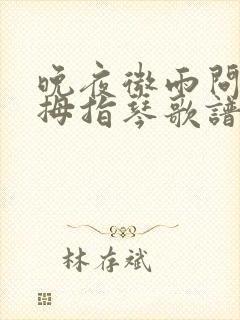 晚夜微雨問
拇指琴歌譜
林存斌